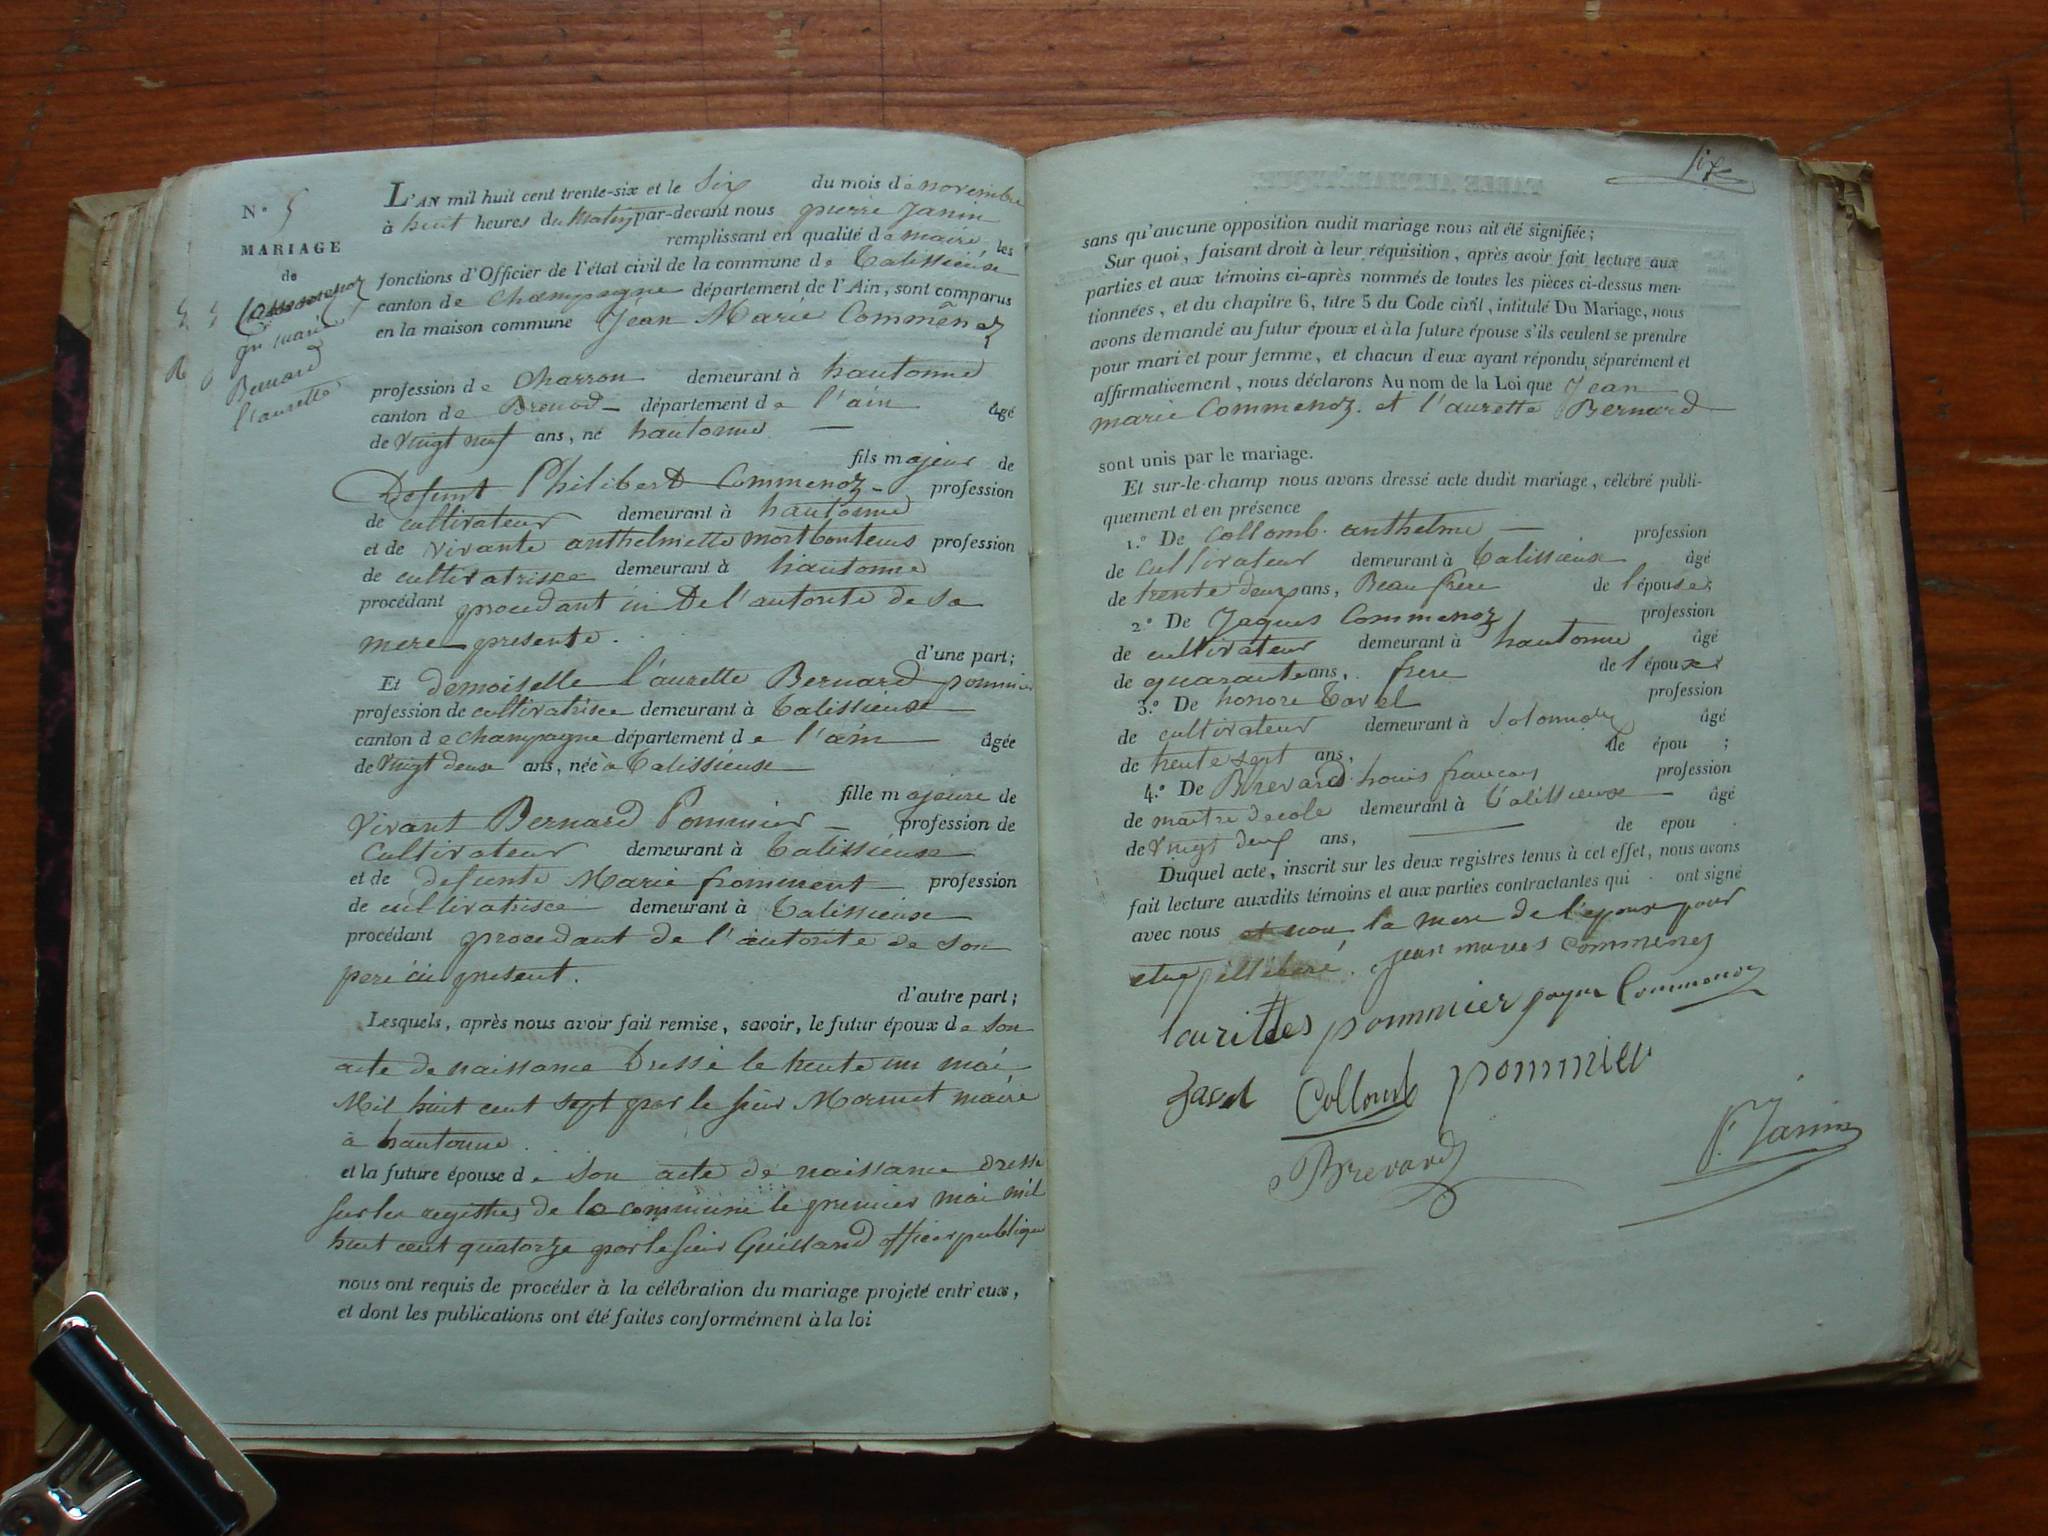 N.° 5
MARIAGE
de
Commenoz
jn marie
Bernard
l'aurette
L'AN mil huit cent trente-six et le Six du mois de novembre
à huit heures du Matin par-devant nous pierre Janin
remplissant en qualité de maire, les
fonctions d'Officier de l'état civil de la commune de Talissieux
canton de Champagne département de l'Ain, sont comparus
en la maison commune Jéan Marié Commênoz
profession de Charron demeurant à hautonne
canton de Brenod - département de l'ain âgé
de vingt neuf ans, né hautonne
fils majeur de
Defunt Philibert Commenoz - profession
de cultivateur demeurant à hautonne
et de vivante anthelmette mortbonteus profession
de cultivatrisce demeurant à hautonne
procédant procedant de l'autorite de sa
mere presente.
d'une part;
Et demoiselle l'aurette Bernard pommier
profession de cultivatrisce demeurant à Talissieux
canton de champagne département de l'ain âgée
de vingt deux ans, née à Talissieux
fille majeure de
vivant Bernard Pommier - profession de
cultivateur demeurant à Talissieux
et de defunte Marie froment profession
de cultivatrisce demeurant à Talissieux
procédant procedant de l'autorite de son
pere ici present.
d'autre part;
Lesquels, après nous avoir fait remise, savoir, le futur époux de son
acte de naissance Dressé le trente un mai
Mil huit cent sept par le sieur Mornet maire
a hautonne.
et la future épouse de son acte de naissance dressé
sur les registres de la commune le premier mai mil
huit cent quatorze par le sieur Guilland officier publique
nous ont requis de procéder à la célébration du mariage projeté entr'eux,
et dont les publications ont été faites conformément à la loi
six
sans qu'aucune opposition audit mariage nous ait été signifiée;
Sur quoi, faisant droit à leur réquisition, après avoir fait lecture aux
parties et aux témoins ci-après nommés de toutes les pièces ci-dessus men-
tionnées, et du chapitre 6, titre 5 du Code civil, intitulé Du Mariage, nous
avons demandé au futur époux et à la future épouse s'ils veulent se prendre
pour mari et pour femme, et chacun d'eux ayant répondu séparément et
affirmativement, nous déclarons Au nom de la Loi que Jean
marie Commenoz. et l'aurette Bernard
sont unis par le mariage.
Et sur-le-champ nous avons dressé acte dudit mariage, célébré publi-
quement et en présence
1.° De Collomb. anthelme - profession
de cultivateur demeurant à Talissieux âgé
de trente deux ans, Beau frere de l'épouse;
2.° De Jaques Commenoz profession
de cultivateur demeurant à hautonne âgé
de quarante ans, frere de l'époux
3.° De honore Tavel profession
de cultivateur demeurant à âgé
de trente sept ans, de épou ;
4.° De Brevard louis francois profession
de maitre decole demeurant à Talissieux âgé
de vingt deux ans, de epou
Duquel acte, inscrit sur les deux registres tenus à cet effet, nous avons
fait lecture auxdits témoins et aux parties contractantes qui ont signé
avec nous et non la mere de l'epoux pour
jean maries commenez
laurittes pommier jaque Commenoz
Tavel Collomb pommier
Brevard P. Janin